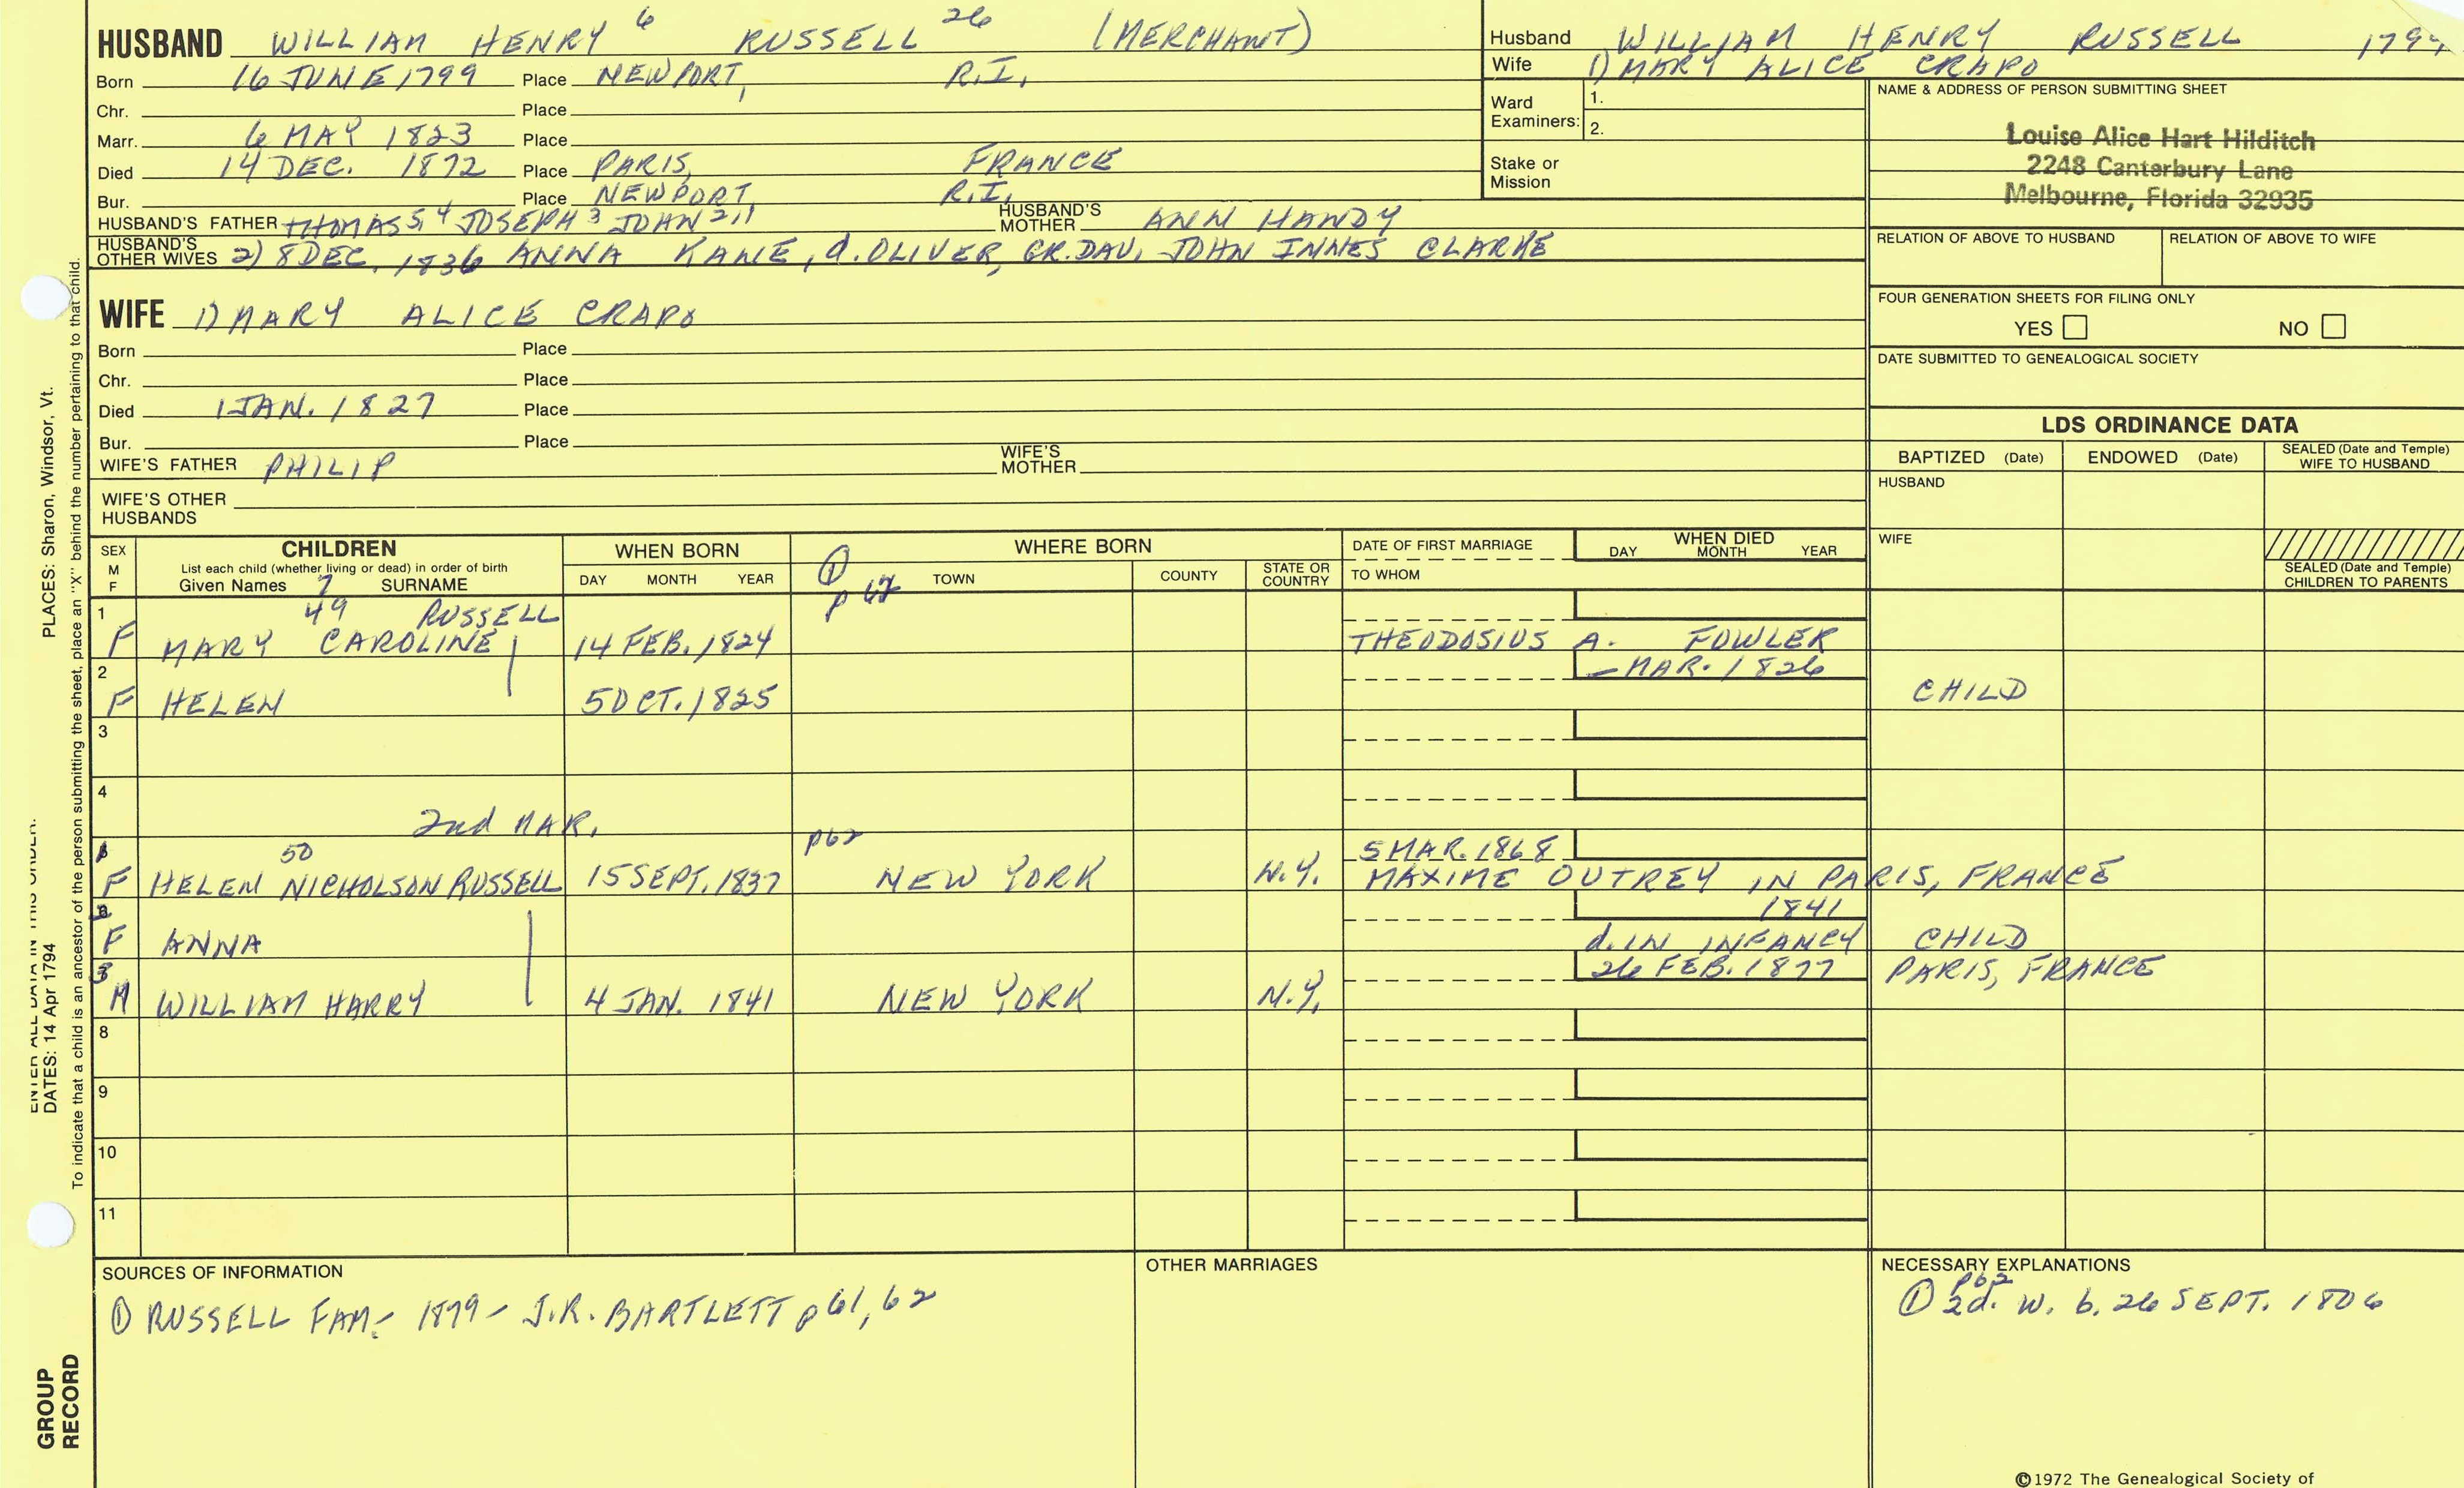 HUSBAND WILLIAM HENRY 6 RUSSELL 26 (MERCHANT)
Born 16 JUNE 1799 Place NEWPORT, R.I.
Chr. Place
Marr. 6 MAY 1823 Place
Died 14 DEC. 1872 Place PARIS, FRANCE
Bur. Place NEWPORT, R.I.
HUSBAND'S FATHER THOMAS 5, 4 JOSEPH 3 JOHN 2,1 HUSBAND'S MOTHER ANN HANDY
HUSBAND'S OTHER WIVES 2) 8 DEC. 1836 ANNA KANE, d. OLIVER, GR. DAU. JOHN INNES CLARKE
WIFE 1) MARY ALICE CRAPO
Born Place
Chr. Place
Died 1 JAN. 1827 Place
Bur. Place
WIFE'S FATHER PHILIP WIFE'S MOTHER
WIFE'S OTHER HUSBANDS
Husband WILLIAM HENRY RUSSELL 1799
Wife 1) MARY ALICE CRAPO
Ward Examiners: 1.
2.
Stake or Mission
NAME & ADDRESS OF PERSON SUBMITTING SHEET
Louise Alice Hart Hilditch
2248 Canterbury Lane
Melbourne, Florida 32935
RELATION OF ABOVE TO HUSBAND RELATION OF ABOVE TO WIFE
FOUR GENERATION SHEETS FOR FILING ONLY
YES NO
DATE SUBMITTED TO GENEALOGICAL SOCIETY
LDS ORDINANCE DATA
BAPTIZED (Date) ENDOWED (Date) SEALED (Date and Temple) WIFE TO HUSBAND
HUSBAND
WIFE
SEALED (Date and Temple) CHILDREN TO PARENTS
SEX M F
CHILDREN
List each child (whether living or dead) in order of birth
Given Names 7 SURNAME
WHEN BORN
DAY MONTH YEAR
WHERE BORN
① TOWN COUNTY STATE OR COUNTRY
p 62
DATE OF FIRST MARRIAGE
TO WHOM
WHEN DIED
DAY MONTH YEAR
1 49 RUSSELL
F MARY CAROLINE 14 FEB. 1824 THEODOSIUS A. FOWLER
2 - MAR. 1826
F HELEN 5 OCT. 1825 CHILD
3
4
2nd MAR.
50 p62 5 MAR. 1868
F HELEN NICHOLSON RUSSELL 15 SEPT. 1837 NEW YORK N.Y. MAXIME OUTREY IN PARIS, FRANCE
2 1841
F ANNA d. IN INFANCY CHILD
3 26 FEB. 1877 PARIS, FRANCE
M WILLIAM HARRY 4 JAN. 1841 NEW YORK N.Y.
8
9
10
11
SOURCES OF INFORMATION
① RUSSELL FAM. - 1879 - J.R. BARTLETT p 61, 62
OTHER MARRIAGES
NECESSARY EXPLANATIONS
p62
① 2d. W. b. 26 SEPT. 1806
©1972 The Genealogical Society of
PLACES: Sharon, Windsor, Vt.
DATES: 14 Apr 1794
ENTER ALL DATA IN THIS ORDER:
To indicate that a child is an ancestor of the person submitting the sheet, place an "X" behind the number pertaining to that child.
GROUP RECORD